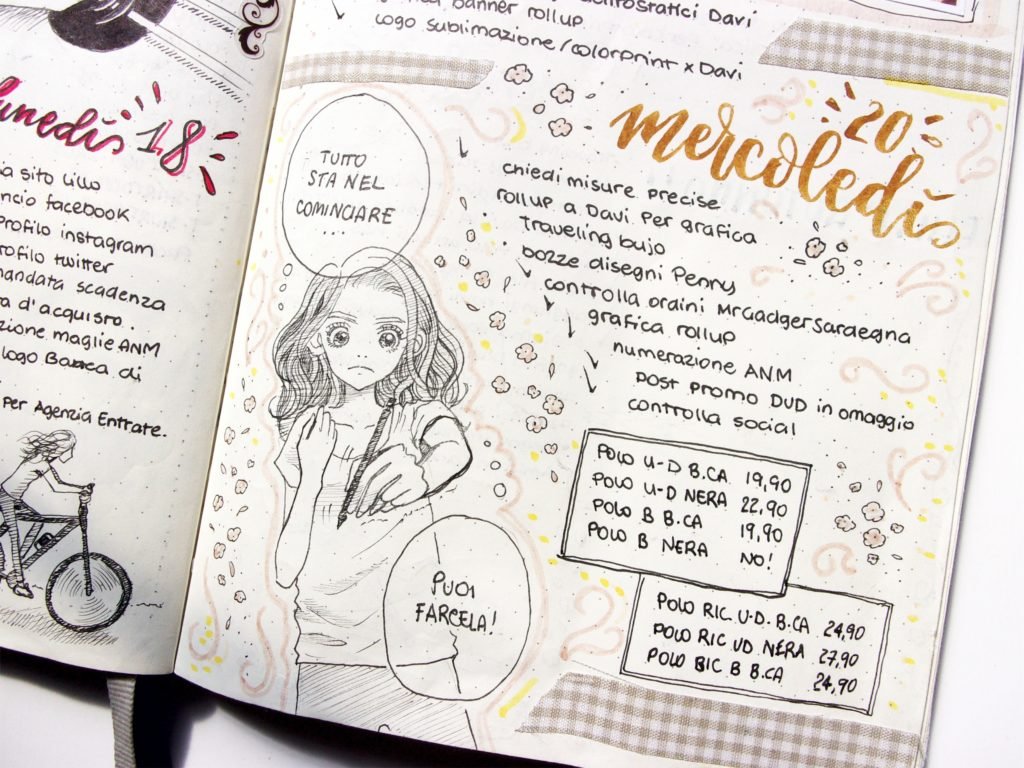 lunedì 18
sito Lillo
facebook
Profilo instagram
profilo twitter
mandata scadenza
d'acquisto.
maglie ANM
logo di
per Agenzia Entrate.
Davi
banner rollup
logo sublimazione/colorprint x Davi
20
mercoledì
TUTTO
STA NEL
COMINCIARE
....
chiedi misure precise
rollup a Davi per grafica
Traveling bujo
bozze disegni Penny
controlla ordini MrGadgetSardegna
grafica rollup
numerazione ANM
post promo DVD in omaggio
controlla social
POLO U-D B.CA 19,90
POLO U-D NERA 22,90
POLO B B.CA 19,90
POLO B NERA NO!
POLO RIC. U-D. B.CA 24,90
POLO RIC UD NERA 27,90
POLO RIC B B.CA 24,90
PUOI
FARCELA!